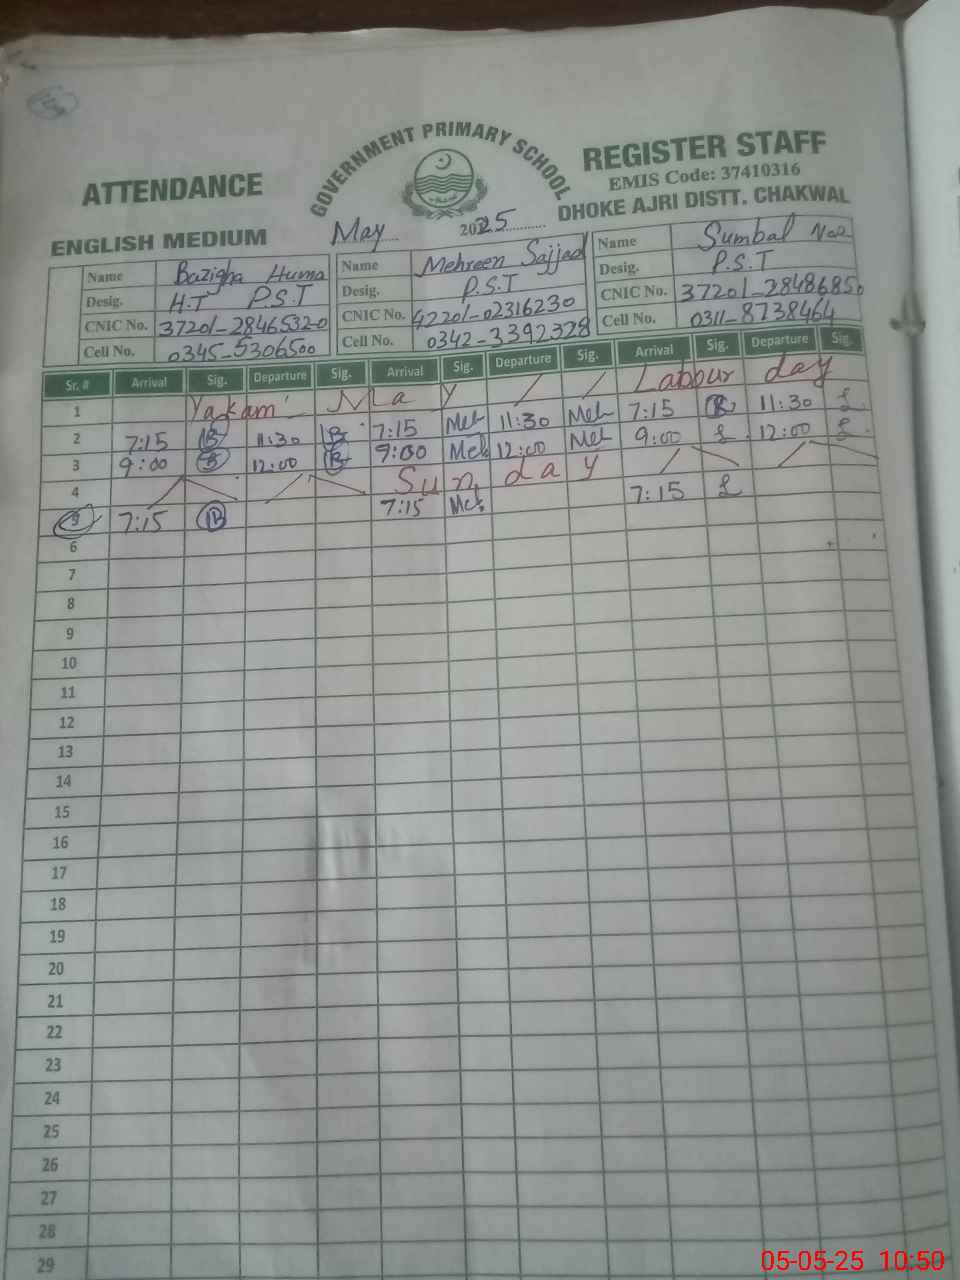 GOVERNMENT PRIMARY SCHOOL
ATTENDANCE
REGISTER STAFF
EMIS Code: 37410316
ENGLISH MEDIUM
May 2025
DHOKE AJRI DISTT. CHAKWAL
Name Bazigha Huma Name Mehreen Sajjad Name Sumbal
Desig. H.T P.S.T Desig. P.S.T Desig. P.S.T
CNIC No. 37201-2846532-0 CNIC No. 42201-02316230 CNIC No. 37201-28486850
Cell No. 0345-5306500 Cell No. 0342-3392328 Cell No. 0311-8738464
Sr. # Arrival Sig. Departure Sig. Arrival Sig. Departure Sig. Arrival Sig. Departure Sig.
1 Yakam May / / Labour day
2 7:15 B 11:30 B 7:15 Meh 11:30 Meh 7:15 11:30
3 9:00 B 12:00 B 9:00 Meh 12:00 Meh 9:00 12:00
4 Sunday
5 7:15 B 7:15 Meh 7:15
6
7
8
9
10
11
12
13
14
15
16
17
18
19
20
21
22
23
24
25
26
27
28
29
05-05-25 10:50